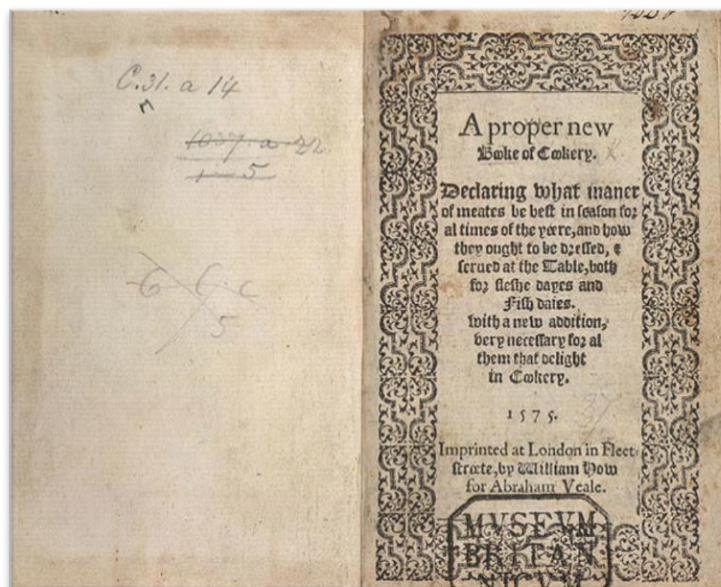 C.31. a 14
1037. a 22
5
C C c
5
A proper new
Booke of Cookery.
Declaring what maner
of meates be best in season for
al times of the yeere, and how
they ought to be dressed, &
serued at the Table, both
for fleshe dayes and
Fish daies.
with a new addition,
very necessary for al
them that delight
in Cookery.
1575.
Imprinted at London in Fleet
streete, by William How
for Abraham Veale.
MVSEVM
BRITAN
NICVM